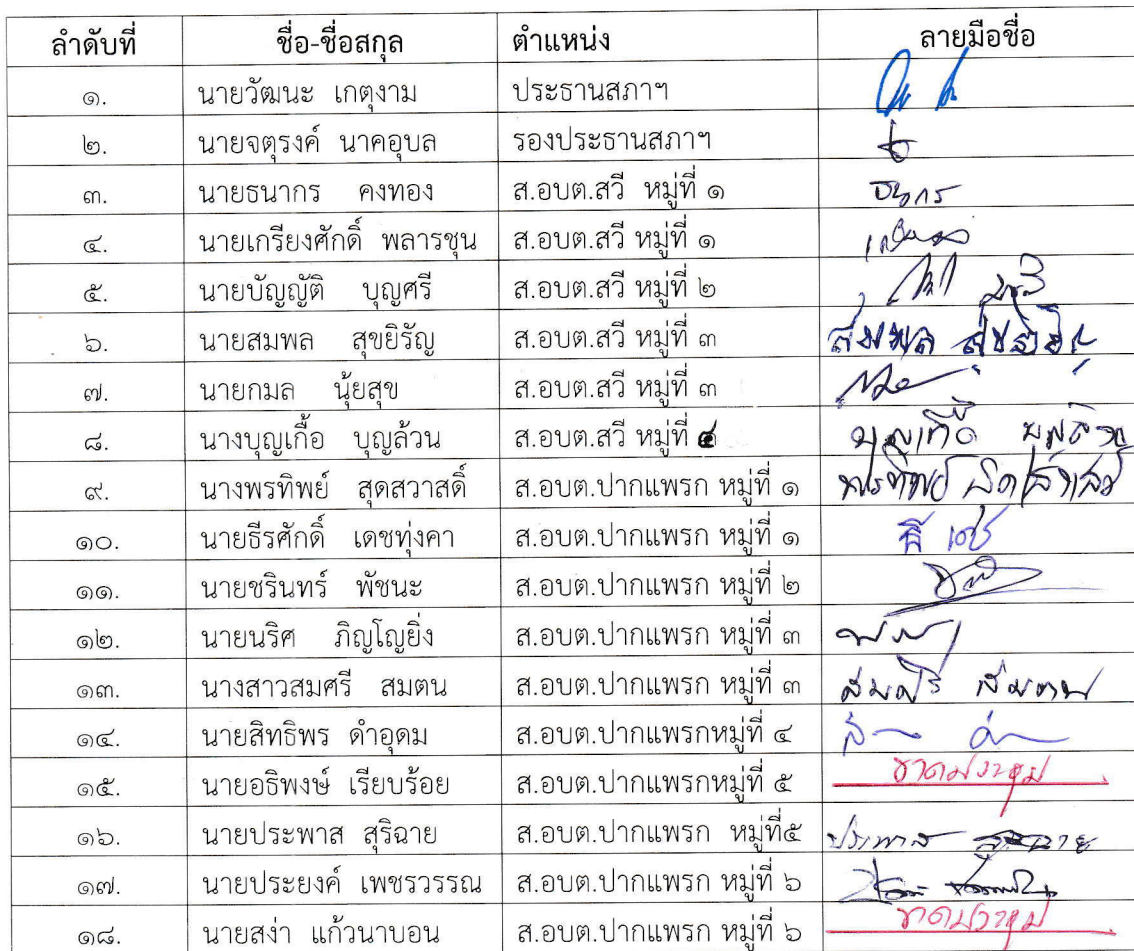 ลำดับที่ ชื่อ-ชื่อสกุล ตำแหน่ง ลายมือชื่อ
๑. นายวัฒนะ เกตุงาม ประธานสภาฯ
๒. นายจตุรงค์ นาคอุบล รองประธานสภาฯ
๓. นายธนากร คงทอง ส.อบต.สวี หมู่ที่ ๑ ธนากร
๔. นายเกรียงศักดิ์ พลารชุน ส.อบต.สวี หมู่ที่ ๑
๕. นายบัญญัติ บุญศรี ส.อบต.สวี หมู่ที่ ๒
๖. นายสมพล สุขยิรัญ ส.อบต.สวี หมู่ที่ ๓ สมพล
๗. นายกมล นุ้ยสุข ส.อบต.สวี หมู่ที่ ๓
๘. นางบุญเกื้อ บุญล้วน ส.อบต.สวี หมู่ที่ ๔ บุญเกื้อ บุญล้วน
๙. นางพรทิพย์ สุดสวาสดิ์ ส.อบต.ปากแพรก หมู่ที่ ๑ พรทิพย์ สุดสวาสดิ์
๑๐. นายธีรศักดิ์ เดชทุ่งคา ส.อบต.ปากแพรก หมู่ที่ ๑
๑๑. นายชรินทร์ พัชนะ ส.อบต.ปากแพรก หมู่ที่ ๒
๑๒. นายนริศ ภิญโญยิ่ง ส.อบต.ปากแพรก หมู่ที่ ๓
๑๓. นางสาวสมศรี สมตน ส.อบต.ปากแพรก หมู่ที่ ๓ สมศรี สมตน
๑๔. นายสิทธิพร ดำอุดม ส.อบต.ปากแพรกหมู่ที่ ๔
๑๕. นายอธิพงษ์ เรียบร้อย ส.อบต.ปากแพรกหมู่ที่ ๕ ขาดประชุม
๑๖. นายประพาส สุริฉาย ส.อบต.ปากแพรก หมู่ที่๕ ประพาส สุริฉาย
๑๗. นายประยงค์ เพชรวรรณ ส.อบต.ปากแพรก หมู่ที่ ๖
๑๘. นายสง่า แก้วนาบอน ส.อบต.ปากแพรก หมู่ที่ ๖ ขาดประชุม